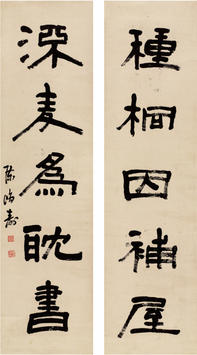 種桐因補屋
深麦爲耽書
陳鴻壽